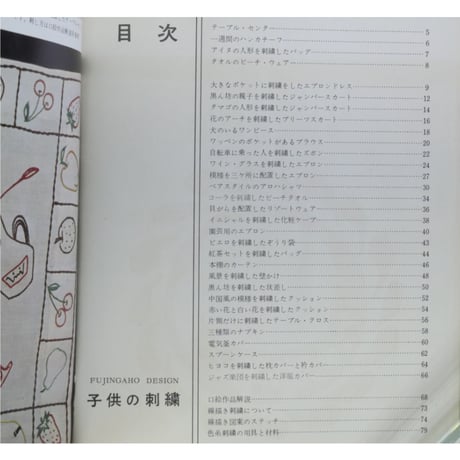 目次
テーブル・センター 5
一週間のハンカチーフ 6
アイヌの人形を刺繍したバッグ 7
タオルのビーチ・ウェア 8
大きなポケットに刺繍をしたエプロンドレス 9
黒ん坊の親子を刺繍したジャンパースカート 12
タマゴの人形を刺繍したジャンパースカート 14
花のアーチを刺繍したプリーツスカート 16
犬のいるワンピース 18
ワッペンのポケットがあるブラウス 20
自転車に乗った人を刺繍したズボン 22
ワイン・グラスを刺繍したエプロン 24
模様を三ケ所に配置したエプロン 27
ペアスタイルのアロハシャツ 30
コーラを刺繍したビーチタオル 34
貝がらを配置したリゾートウェア 36
イニシャルを刺繍した化粧ケープ 38
園芸用のエプロン 40
ピエロを刺繍したぞうり袋 43
紅茶セットを刺繍したバッグ 44
本棚のカーテン 46
風景を刺繍した壁かけ 48
黒ん坊を刺繍した状差し 50
中国風の模様を刺繍したクッション 52
赤い花と白い花を刺繍したクッション 54
片側だけに刺繍したテーブル・クロス 56
三種類のナプキン 58
電気釜カバー 60
スプーンケース 62
ヒヨコを刺繍した枕カバーと衿カバー 64
ジャズ楽団を刺繍した洋服カバー 66
口絵作品解説 68
線描き刺繍について 73
線描き図案のステッチ 74
色糸刺繍の用具と材料 79
FUJINGAHO DESIGN
子供の刺繍